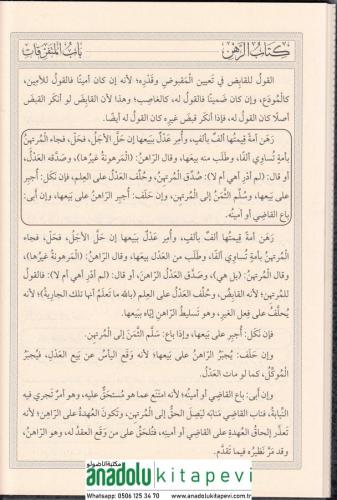 كتاب الرهن
باب المتفرقات
القول للقابض في تعيين المقبوض وقدره؛ لأنه إن كان أمينًا فالقول للأمين،
كالمودع، وإن كان ضمينًا فالقول له، كالغاصب؛ وهذا لأن القابض لو أنكر القبض
أصلًا كان القول له، فإذا أنكر قبض غيره كان القول له أيضًا.
رهن أمة قيمتها ألف بألف، وأمر عدل ببيعها إن حل الأجل، فحل، فجاء المرتهن
بأمة تساوي ألفًا، وطلب منه بيعها، وقال الراهن: (المرهونة غيرها)، وصدقه العدل،
أو قال: (لم أدر أهي أم لا): صدق المرتهن، وحلف العدل على العلم، فإن نكل: أجبر
على بيعها، وسلم الثمن إلى المرتهن، وإن حلف: أجبر الراهن على بيعها، وإن أبى:
باع القاضي أو أمينه.
رهن أمة قيمتها ألف بألف، وأمر عدل ببيعها إن حل الأجل، فحل، فجاء
المرتهن بأمة تساوي ألفًا، وطلب من العدل بيعها، وقال الراهن: (المرهونة غيرها)،
وقال المرتهن: (بل هي)، وصدق العدل الراهن، أو قال: (لم أدر أهي أم لا): فالقول
للمرتهن؛ لأنه القابض، وحلف العدل على العلم (بالله ما تعلم أنها تلك الجارية)؛ لأنه
يحلف على فعل الغير، وهو تسليط الراهن إياه ببيعها.
فإن نكل: أجبر على بيعها، وإذا باع: سلم الثمن إلى المرتهن.
وإن حلف: يجبر الراهن على بيعها؛ لأنه وقع اليأس عن بيع العدل، فيجبر
الموكل، كما لو مات العدل.
وإن أبى: باع القاضي أو أمينه؛ لأنه امتنع عما هو مستحق عليه، وهو أمر تجري فيه
النيابة، فناب القاضي منابه ليصل الحق إلى المرتهن، وتكون العهدة على الراهن؛ لأنه
تعذر إلحاق العهدة على القاضي أو أمينه، فتلحق على من وقع العقد له، وهو الراهن،
وقد مر نظيره فيما تقدم.
مكتبة الاناضولو
anadolu kitapevi
Whatsapp: 0506 125 34 70 www.anadolukitapevi.com